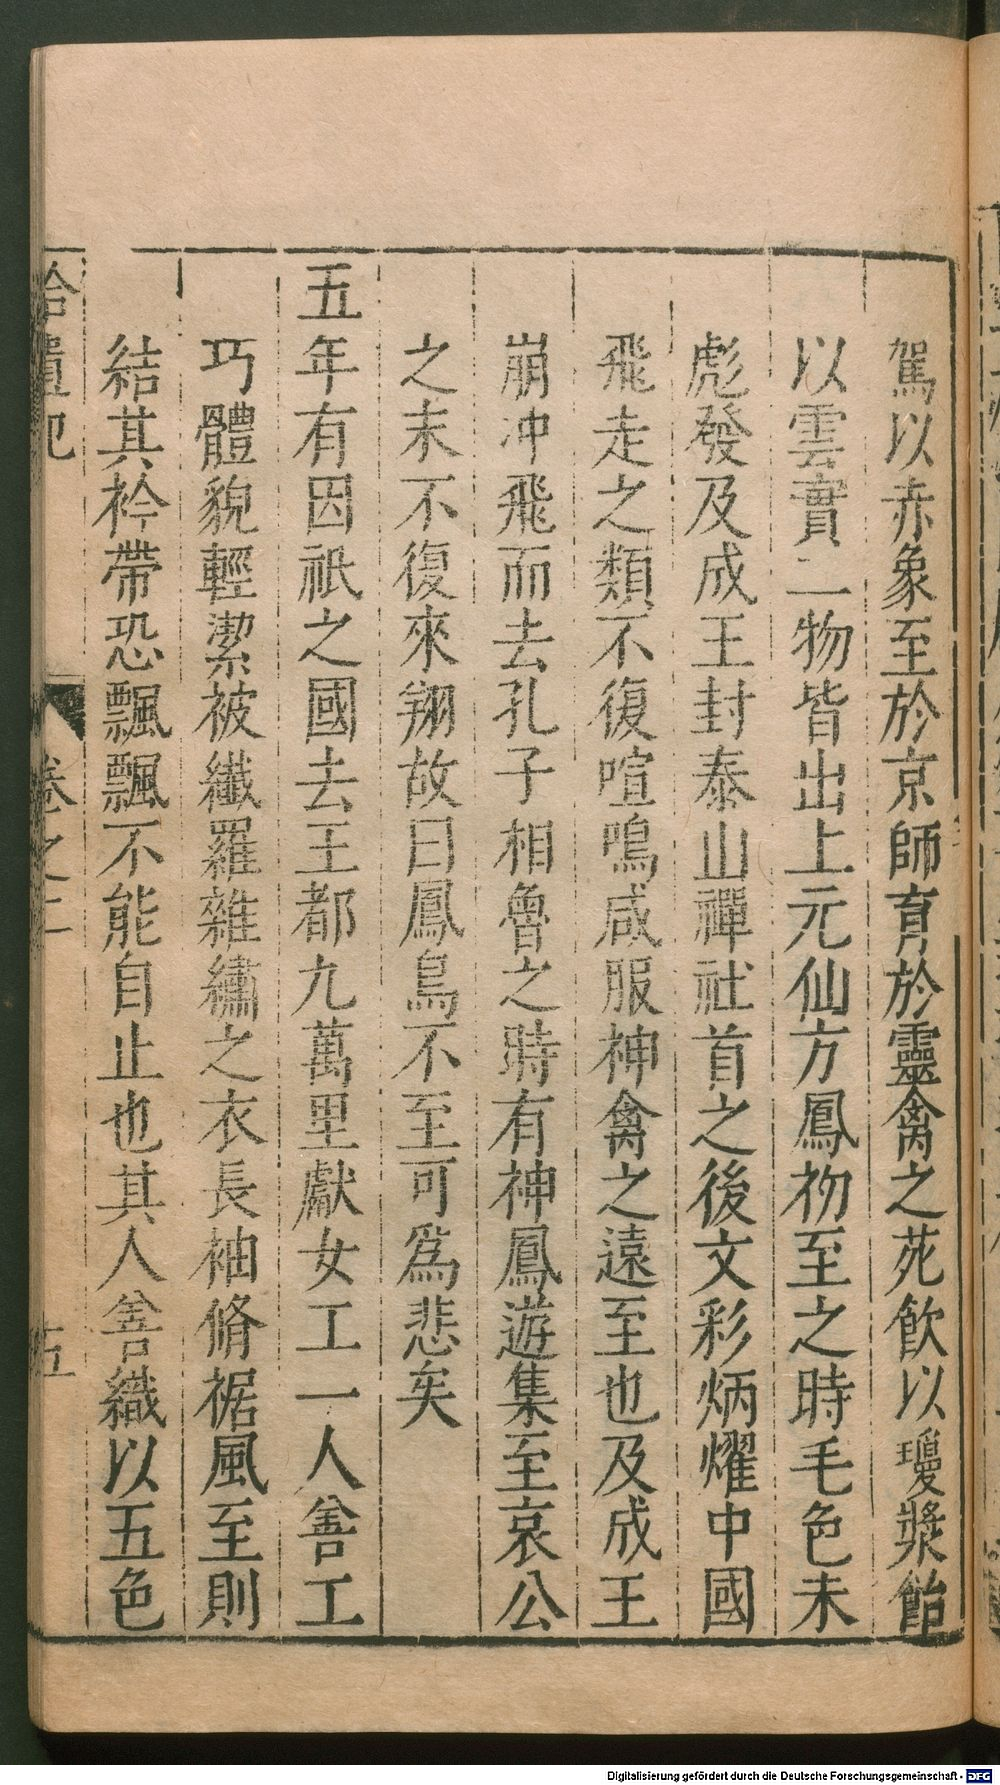 駕以赤象至於京師育於靈禽之苑飲以瓊漿飴
以雲實二物皆出上元仙方鳳初至之時毛色未
彪發及成王封泰山禪社首之後文彩炳燿中國
飛走之類不復喧鳴咸服神禽之遠至也及成王
崩冲飛而去孔子相魯之時有神鳳遊集至哀公
之末不復來翔故曰鳳鳥不至可爲悲矣
五年有因祇之國去王都九萬里獻女工一人善工
巧體貌輕潔被纖羅雜繡之衣長袖脩裾風至則
結其衿帶恐飄飄不能自止也其人善織以五色
拾遺記 卷之二 五
Digitalisierung gefördert durch die Deutsche Forschungsgemeinschaft - DFG